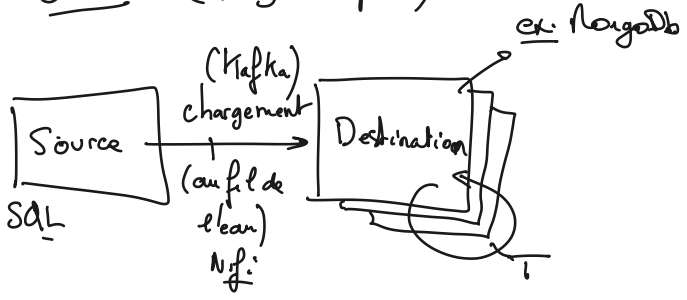 ex: MongoDb
(Kafka)
chargement
Source
Destination
(au fil de
l'eau)
SQL
Nifi